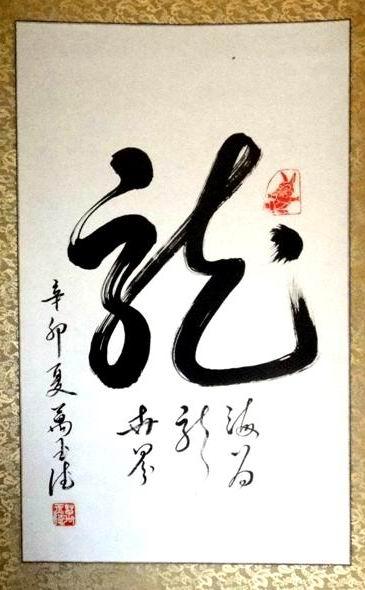 龍
海為
龍
世界
辛卯夏萬玉